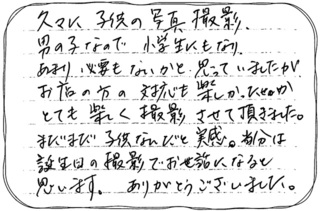 久々に、子供の写真撮影。
男の子なので 小学生にもなり、
あまり必要もないかと思っていましたが、
お店の方の対応も楽しか
とても楽しく撮影させて頂きました。
まだまだ子供なんだと実感。当分は
誕生日の撮影でお世話になると
思います。 ありがとうございました。